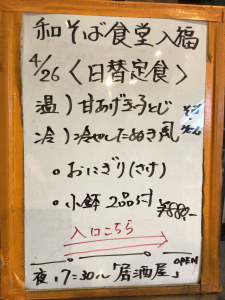 和そば食堂入福
4/26 〈日替定食〉
温）甘あげ玉子とじ
冷）冷やしたぬき風
。おにぎり（さけ）
。小鉢 2品付
入口こちら
OPEN
夜、17:30〜「居酒屋」